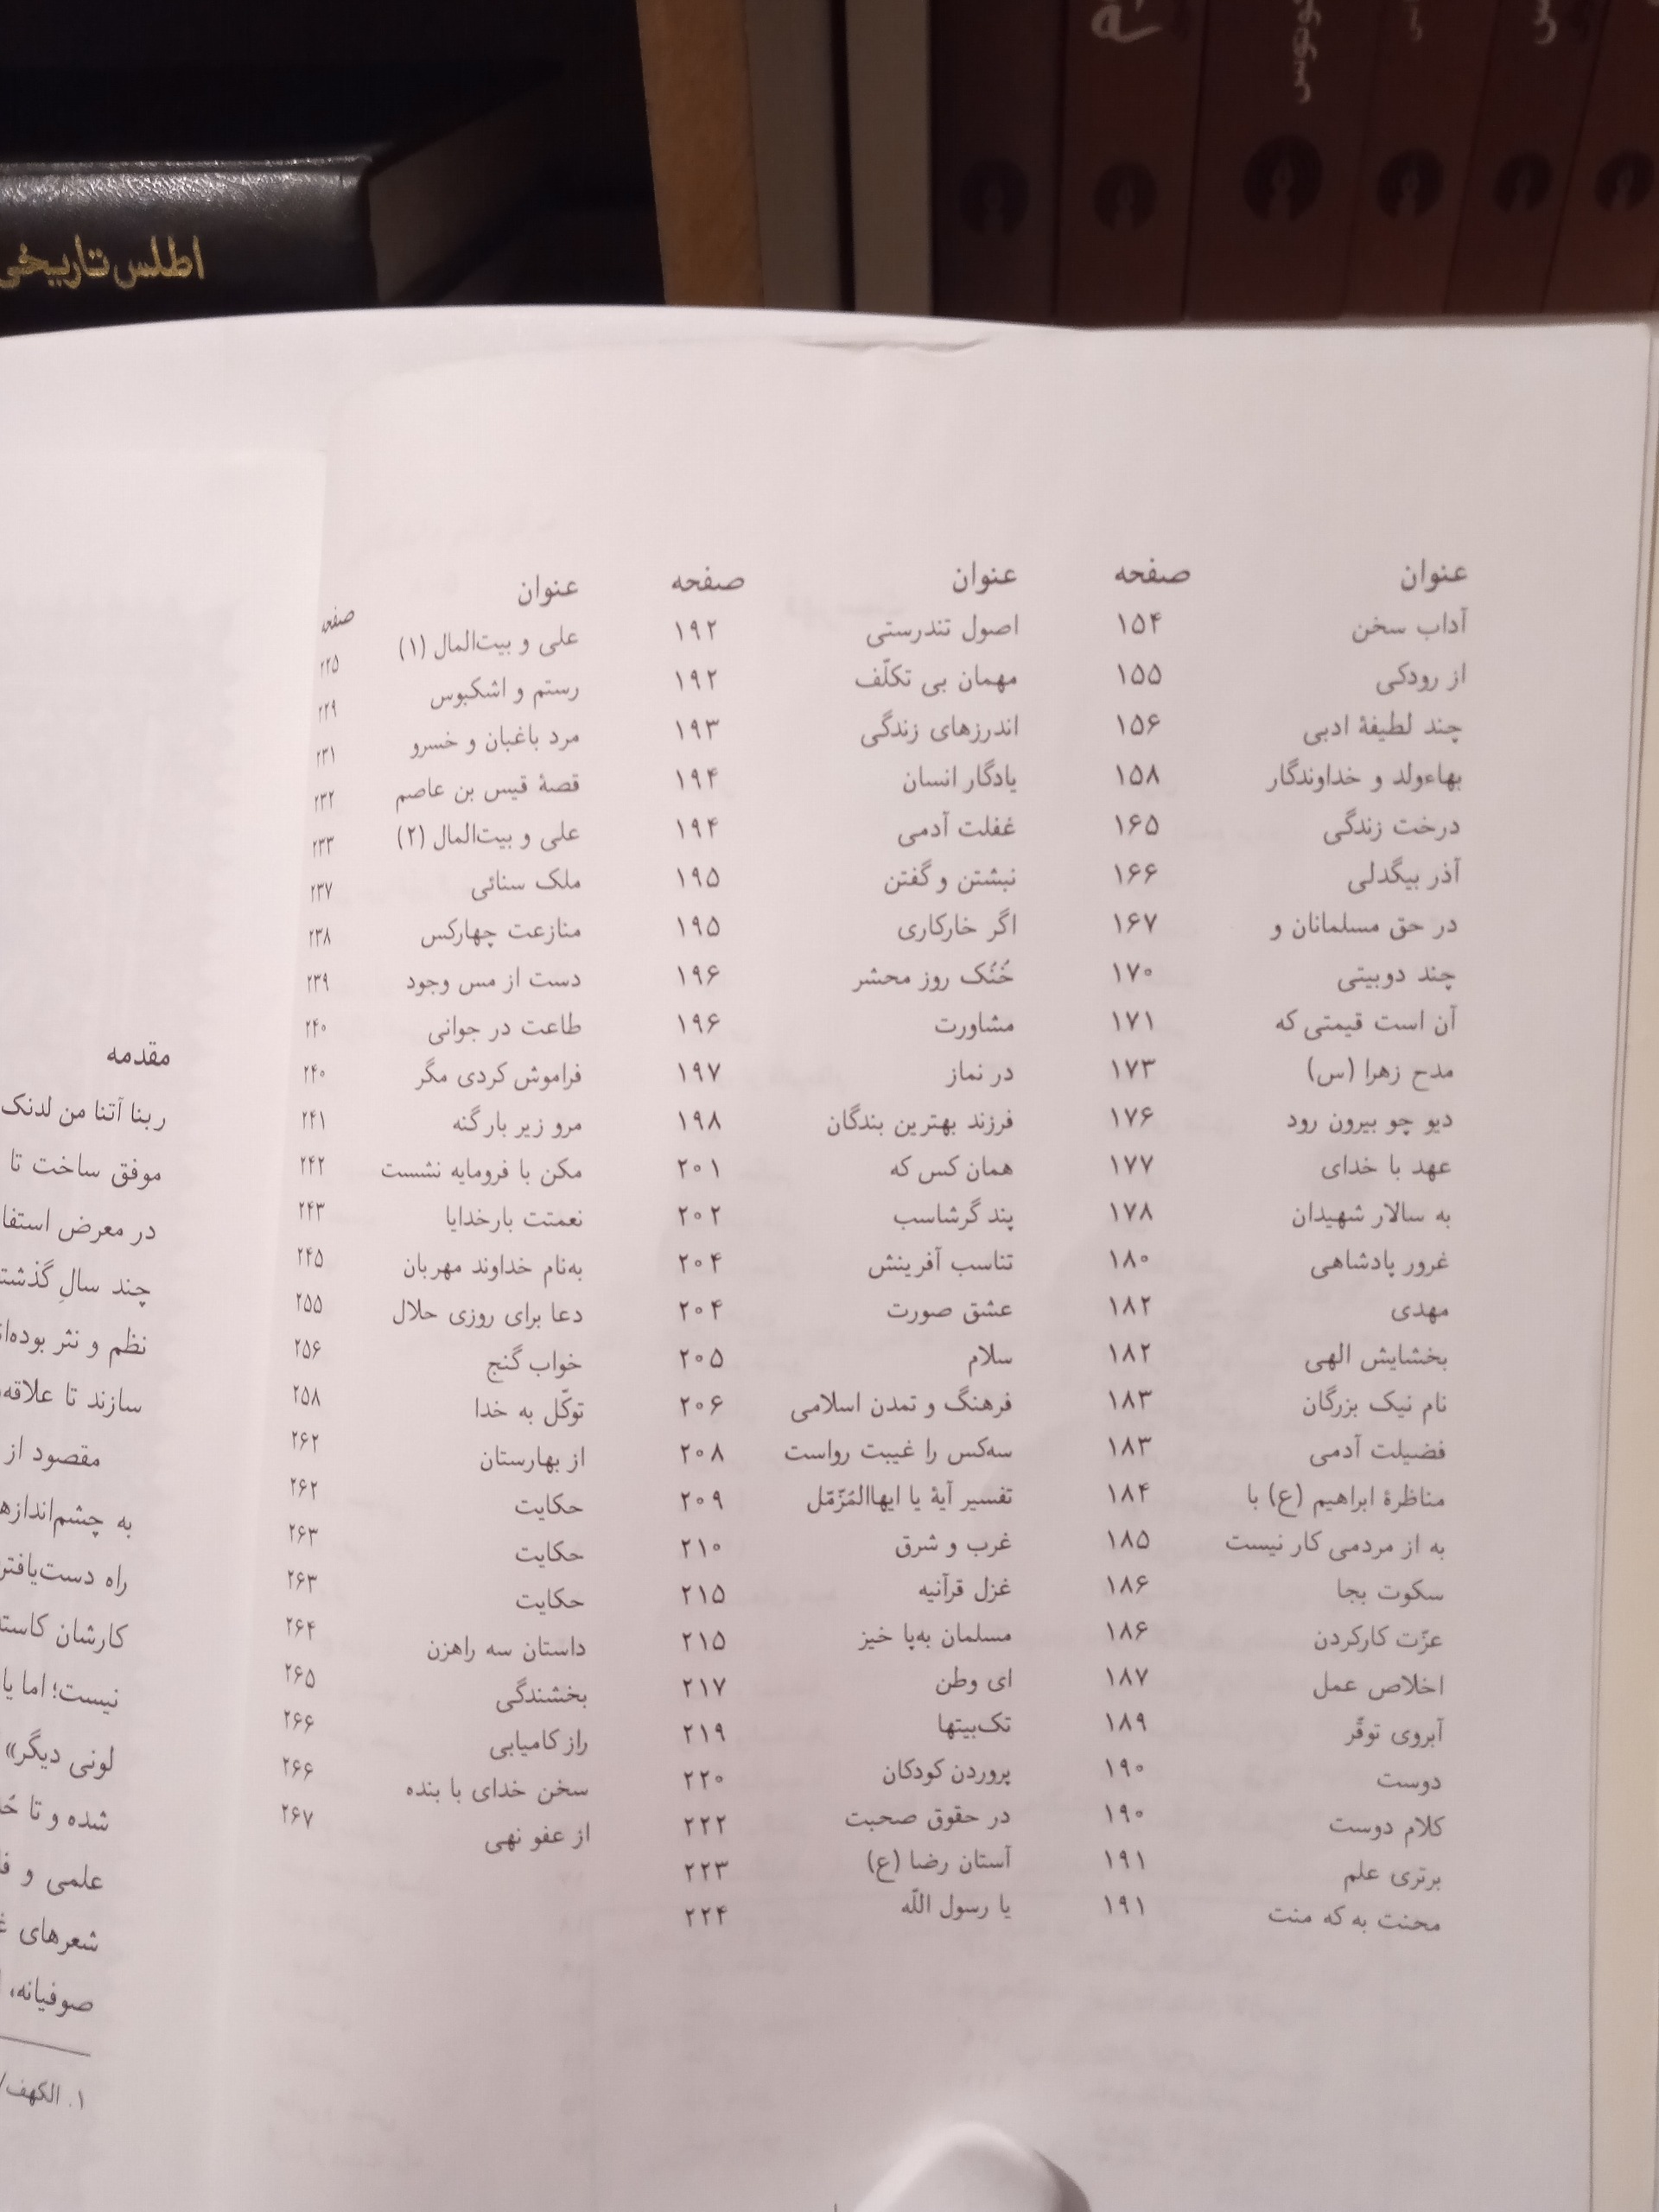 اطلس تاریخی
عنوان صفحه
آداب سخن ۱۵۴
از رودکی ۱۵۵
چند لطیفهٔ ادبی ۱۵۶
بهاءولد و خداوندگار ۱۵۸
درخت زندگی ۱۶۵
آذر بیگدلی ۱۶۶
در حق مسلمانان و ۱۶۷
چند دوبیتی ۱۷۰
آن است قیمتی که ۱۷۱
مدح زهرا (س) ۱۷۳
دیو چو بیرون رود ۱۷۶
عهد با خدای ۱۷۷
به سالار شهیدان ۱۷۸
غرور پادشاهی ۱۸۰
مهدی ۱۸۲
بخشایش الهی ۱۸۲
نام نیک بزرگان ۱۸۳
فضیلت آدمی ۱۸۳
مناظرهٔ ابراهیم (ع) با ۱۸۴
به از مردمی کار نیست ۱۸۵
سکوت بجا ۱۸۶
عزّت کارکردن ۱۸۶
اخلاص عمل ۱۸۷
آبروی توقّر ۱۸۹
دوست ۱۹۰
کلام دوست ۱۹۰
برتری علم ۱۹۱
محنت به که منت ۱۹۱
عنوان صفحه
اصول تندرستی ۱۹۲
مهمان بی تکلّف ۱۹۲
اندرزهای زندگی ۱۹۳
یادگار انسان ۱۹۴
غفلت آدمی ۱۹۴
نبشتن و گفتن ۱۹۵
اگر خارکاری ۱۹۵
خُنُک روز محشر ۱۹۶
مشاورت ۱۹۶
در نماز ۱۹۷
فرزند بهترین بندگان ۱۹۸
همان کس که ۲۰۱
پند گرشاسب ۲۰۲
تناسب آفرینش ۲۰۴
عشق صورت ۲۰۴
سلام ۲۰۵
فرهنگ و تمدن اسلامی ۲۰۶
سه‌کس را غیبت رواست ۲۰۸
تفسیر آیهٔ یا ایهاالمُزّمّل ۲۰۹
غرب و شرق ۲۱۰
غزل قرآنیه ۲۱۵
مسلمان به‌پا خیز ۲۱۵
ای وطن ۲۱۷
تک‌بیتها ۲۱۹
پروردن کودکان ۲۲۰
در حقوق صحبت ۲۲۲
آستان رضا (ع) ۲۲۳
یا رسول اللّه ۲۲۴
عنوان صفحه
علی و بیت‌المال (۱) ۲۲۵
رستم و اشکبوس ۲۲۹
مرد باغبان و خسرو ۲۳۱
قصهٔ قیس بن عاصم ۲۳۲
علی و بیت‌المال (۲) ۲۳۳
ملک سنائی ۲۳۷
منازعت چهارکس ۲۳۸
دست از مس وجود ۲۳۹
طاعت در جوانی ۲۴۰
فراموش کردی مگر ۲۴۰
مرو زیر بار گنه ۲۴۱
مکن با فرومایه نشست ۲۴۲
نعمتت بارخدایا ۲۴۳
به‌نام خداوند مهربان ۲۴۵
دعا برای روزی حلال ۲۵۵
خواب گنج ۲۵۶
توکّل به خدا ۲۵۸
از بهارستان ۲۶۲
حکایت ۲۶۲
حکایت ۲۶۳
حکایت ۲۶۳
داستان سه راهزن ۲۶۴
بخشندگی ۲۶۵
راز کامیابی ۲۶۶
سخن خدای با بنده ۲۶۶
از عفو نهی ۲۶۷
مقدمه
ربنا آتنا من لدنک
موفق ساخت تا
در معرض
چند سالِ
نظم و نثر
سازند تا
مقصود از
به
راه
کارشان
نیست؛ اما
لونی دیگر»
شده و تا
علمی و
شعرهای
صوفیانه،
۱. الکهف/